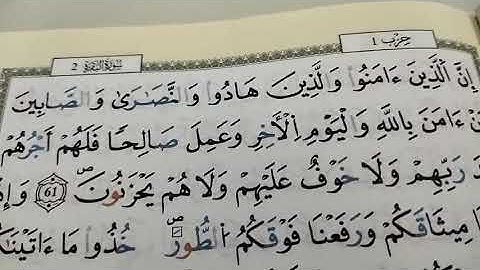 حِزْب 1
سُورَةُ الْبَقَرَة 2
إِنَّ اَ۬لذِينَ ءَامَنُواْ وَالذِينَ هَادُواْ وَالنَّصَٰرَىٰ وَالصَّٰبِينَ
ءَامَنَ بِاللَّهِ وَالْيَوْمِ اِ۬لْأَخِرِ وَعَمِلَ صَٰلِحاً فَلَهُمْ أَجْرُهُمْ
رَبِّهِمْ وَلَا خَوْفٌ عَلَيْهِمْ وَلَا هُمْ يَحْزَنُونَۖ 61
مِيثَٰقَكُمْ وَرَفَعْنَا فَوْقَكُمُ اُ۬لطُّورَۖ خُذُواْ مَا ءَاتَيْنَٰكُم